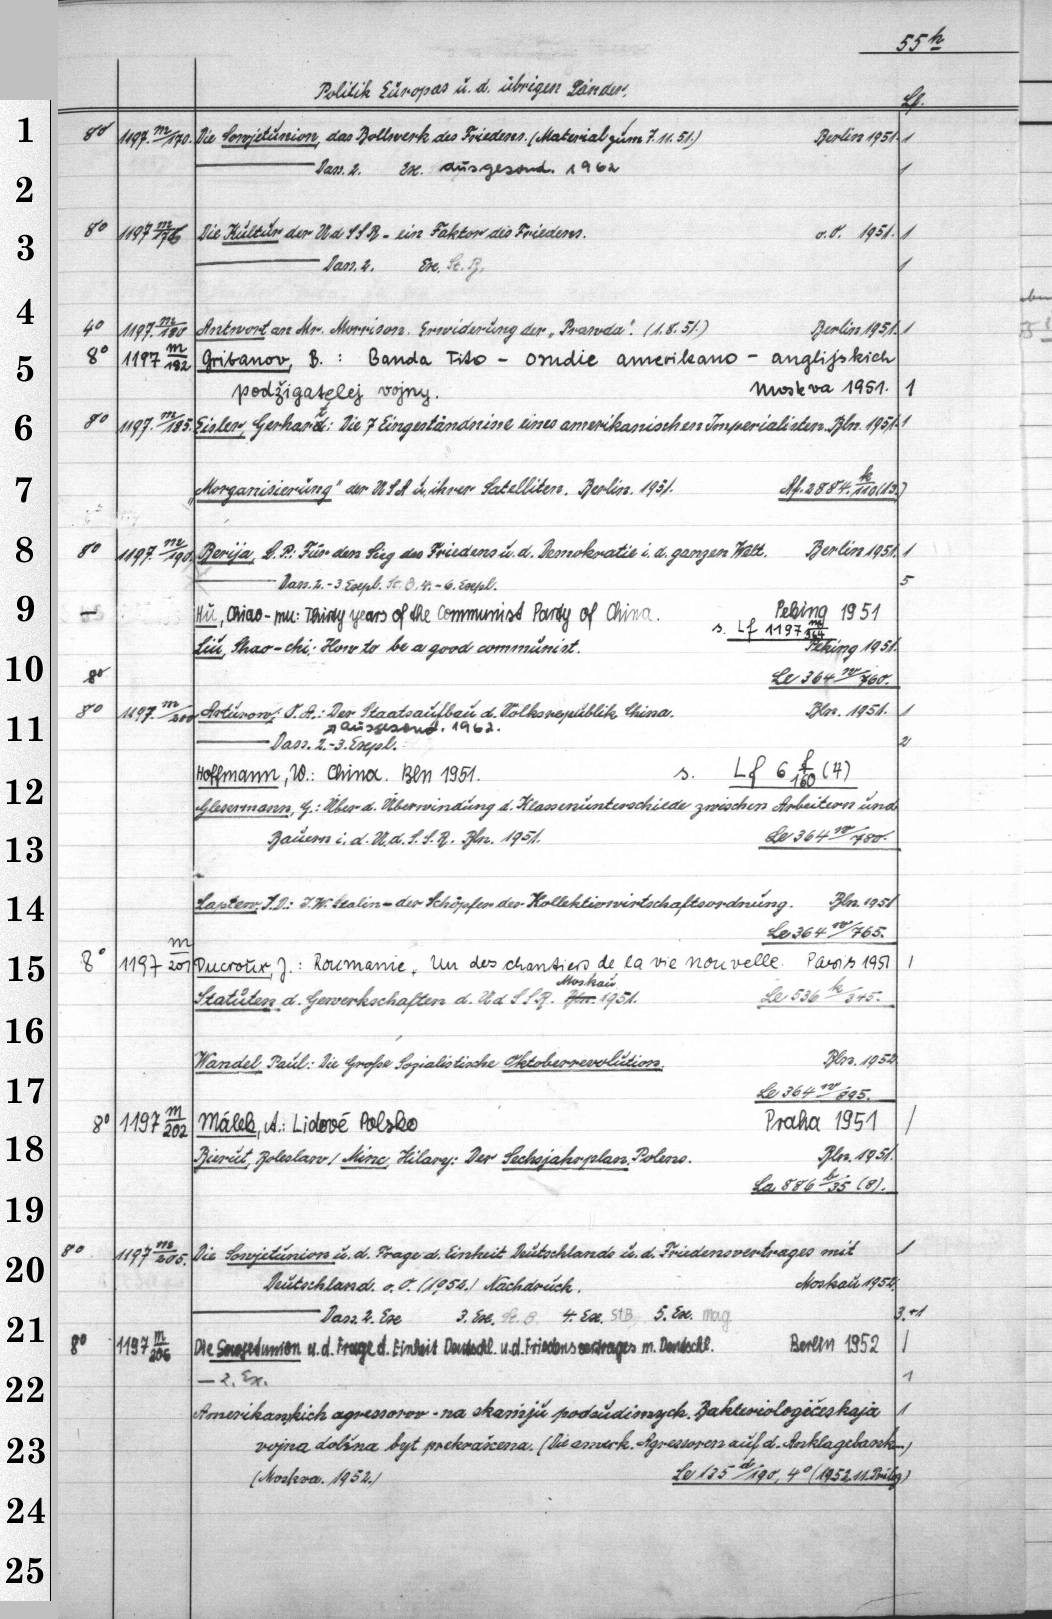 55h
Politik Europas u. d. übrigen Länder.
Lf.
1 8° 1197.m/170. Die Sowjetunion, das Bollwerk des Friedens. (Material zum 7.11.51.) Berlin 1951. 1
Dass. 2. Ex. ausgesond. 1962 1
2
3 8° 1197 m/176 Die Kultur der UdSSR - ein Faktor des Friedens. o.O. 1951. 1
Dass. 2. Exe. St. B. 1
4 4° 1197.m/180 Antwort an Mr. Morrison. Erwiderung der „Prawda". (1.8.51.) Berlin 1951. 1
5 8° 1197 m/182 Gribanov, B. : Banda Tito - orudie amerikano - anglijskich
podžigatelej vojny. Moskva 1951. 1
6 8° 1197.m/185. Eisler, Gerhart: Die 7 Eingeständnisse eines amerikanischen Imperialisten. Bln. 1951. 1
7 „Morganisierung" der USA u. ihrer Satelliten. Berlin. 1951. Af. 2884. k/110(13.)
8 8° 1197.m/190. Berija, L.P.: Für den Sieg des Friedens u. d. Demokratie i. d. ganzen Welt. Berlin 1951. 1
Dass. 2.-3 Exepl. St. B. 4.-6. Exepl. 5
9 Hu, Chiao-mu: Thirty years of the Communist Party of China. Peking 1951
s. Lf 1197
Liu, Shao-chi: How to be a good communist. Peking 1951.
10 8° Le 364 w/760.
8° 1197.m/200 Arturow, O.A.: Der Staatsaufbau d. Volksrepublik China. Bln. 1951. 1
11 ausgesond. 1962.
Dass. 2.-3. Exepl. 2
Hoffmann, W.: China. Bln 1951. s. Lf 6 f/160 (4)
12 Glesermann, G.: Über d. Überwindung d. Klassenunterschiede zwischen Arbeitern und
13 Bauern i. d. U.d.S.S.R. Bln. 1951. Le 364 w/780.
14 Laptew, I.D.: J.W. Stalin - der Schöpfer der Kollektivwirtschaftsordnung. Bln. 1951
Le 364 w/765.
15 8° 1197 m/201 Ducroux, J. : Roumanie, Un des chantiers de la vie nouvelle. Paris 1951 1
Moskau
Statuten d. Gewerkschaften d. UdSSR. Bln. 1951. Le 536 k/345.
16
Wandel, Paul: Die Große Sozialistische Oktoberrevolution. Bln. 1952
17 Le 364 w/895.
8° 1197 m/202 Málek, A.: Lidové Polsko Praha 1951 1
18 Bierut, Boleslaw / Minc, Hilary: Der Sechsjahrplan Polens. Bln. 1951.
La 886 k/35 (8).
19
8° 1197 m/205. Die Sowjetunion u. d. Frage d. Einheit Deutschlands u. d. Friedensvertrages mit 1
20 Deutschland. o.O. (1952.) Nachdruck. Moskau 1952.
Dass. 2. Exe 3. Exe. St. B. 4. Exe. StB. 5. Exe. mag 3.+1
21 8° 1197 m/206 Die Sowjetunion u. d. Frage d. Einheit Deutschl. u. d. Friedensvertrages m. Deutschl. Berlin 1952 1
22 — 2. Ex. 1
Amerikanskich agressorov - na skam'ju podsudimych. Bakteriologičeskaja 1
23 vojna dolžna byt prekraščena. (Die amerk. Agressoren auf d. Anklagebank.)
(Moskva. 1952.) Le 135 d/190, 4° (1952.11.Beilag)
24
25